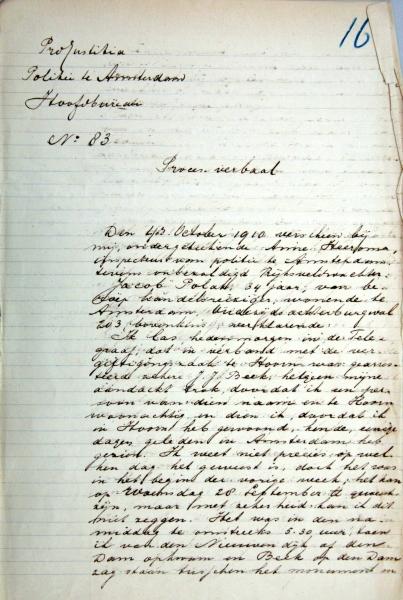 16
Pro Justitia
Politie te Amsterdam
Hoofdbureau
No 83
Proces verbaal
Den 4/3 October 1910 verscheen bij
mij, ondergeteekende Anne Heerema,
inspecteur van politie te Amsterdam
tevens onbezoldigd Rijksveldwachter:
Jacob Polak, 34 jaar, van be-
roep handelsreiziger, wonende te
Amsterdam, Oudezijds achterburgwal
203, bovenhuis, verklarende:
Ik las hedenmorgen in de Tele-
graaf, dat in verband met de ver-
giftigingszaak te Hoorn was gearres-
teerd zekere Beek, hetgeen mijne
aandacht trok, doordat ik een per-
soon van dien naam en te Hoorn
woonachtig, en dien ik, doordat ik
in Hoorn heb gewoond, kende, eenige
dagen geleden in Amsterdam heb
gezien. Ik weet niet precies op wel-
ken dag het geweest is, doch het was
in het begin der vorige week; het kan
op Woensdag 28 September geweest
zijn, maar met zekerheid kan ik dit
niet zeggen. Het was in den na-
middag te omstreeks 5.30 uur, toen
ik van den Nieuwendijk af den
Dam opkwam en Beek op den Dam
zag staan tusschen het monument en